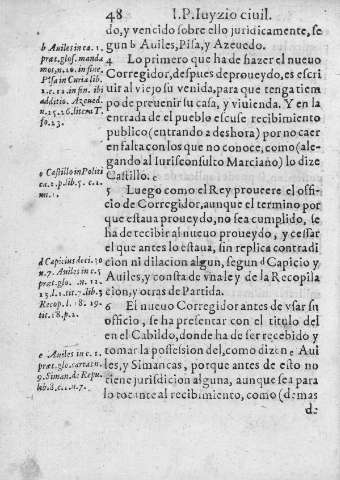 48 I.P. Iuyzio ciuil.
do, y vencido sobre ello juridicamente, se
gun b Auiles, Pisa, y Azeuedo.
4 Lo primero que ha de hazer el nueuo
Corregidor, despues de proueydo, es escri
uir al viejo su venida, para que tenga tiem
po de preuenir su casa, y viuienda. Y en la
entrada de el pueblo escuse recibimiento
publico (entrando a deshora) por no caer
en falta con los que no conoce, como (ale-
gando al Iurisconsulto Marciano) lo dize
Castillo. c
5 Luego como el Rey prouee re el offi-
cio de Corregidor, aunque el termino por
que estaua proueydo, no sea cumplido, se
ha de recibir al nueuo proueydo, y cessar
el que antes lo estaua, sin replica contradi
cion ni dilacion algun, segun d Capicio y
Auiles, y consta de vna ley de la Recopila
cion, y otras de Partida.
6 El nueuo Corregidor antes de vsar su
officio, se ha presentar con el titulo del
en el Cabildo, donde ha de ser recebido y
tomar la possession del, como dizen e Aui
les, y Simancas, porque antes de esto no
tiene jurisdicion alguna, aunque sea para
lo tocante al recibimiento, como (demas
de
b Auiles in ca. 1.
præt. glos. manda
mos, n. 16. in fine.
Pisa in Curia lib.
2. c. 12. in fin. ibi
additio. Azeued.
n. 25. 26. item T.
fo. 23.
c Castillo in Politi
ca. 2. p. lib. 5. c. 1.
nu. 1.
d Capicius deci. 30
n. 7. Auiles in c. 5
præt. glo. n. 12.
13. l. 1. tit. 7. lib. 3
Recop. l. 18. 19.
tit. 18. p. 2.
e Auiles in c. 1.
præt. glo. carta n.
9. Siman. de Repu
lib. 8. c. 1. n. 7.